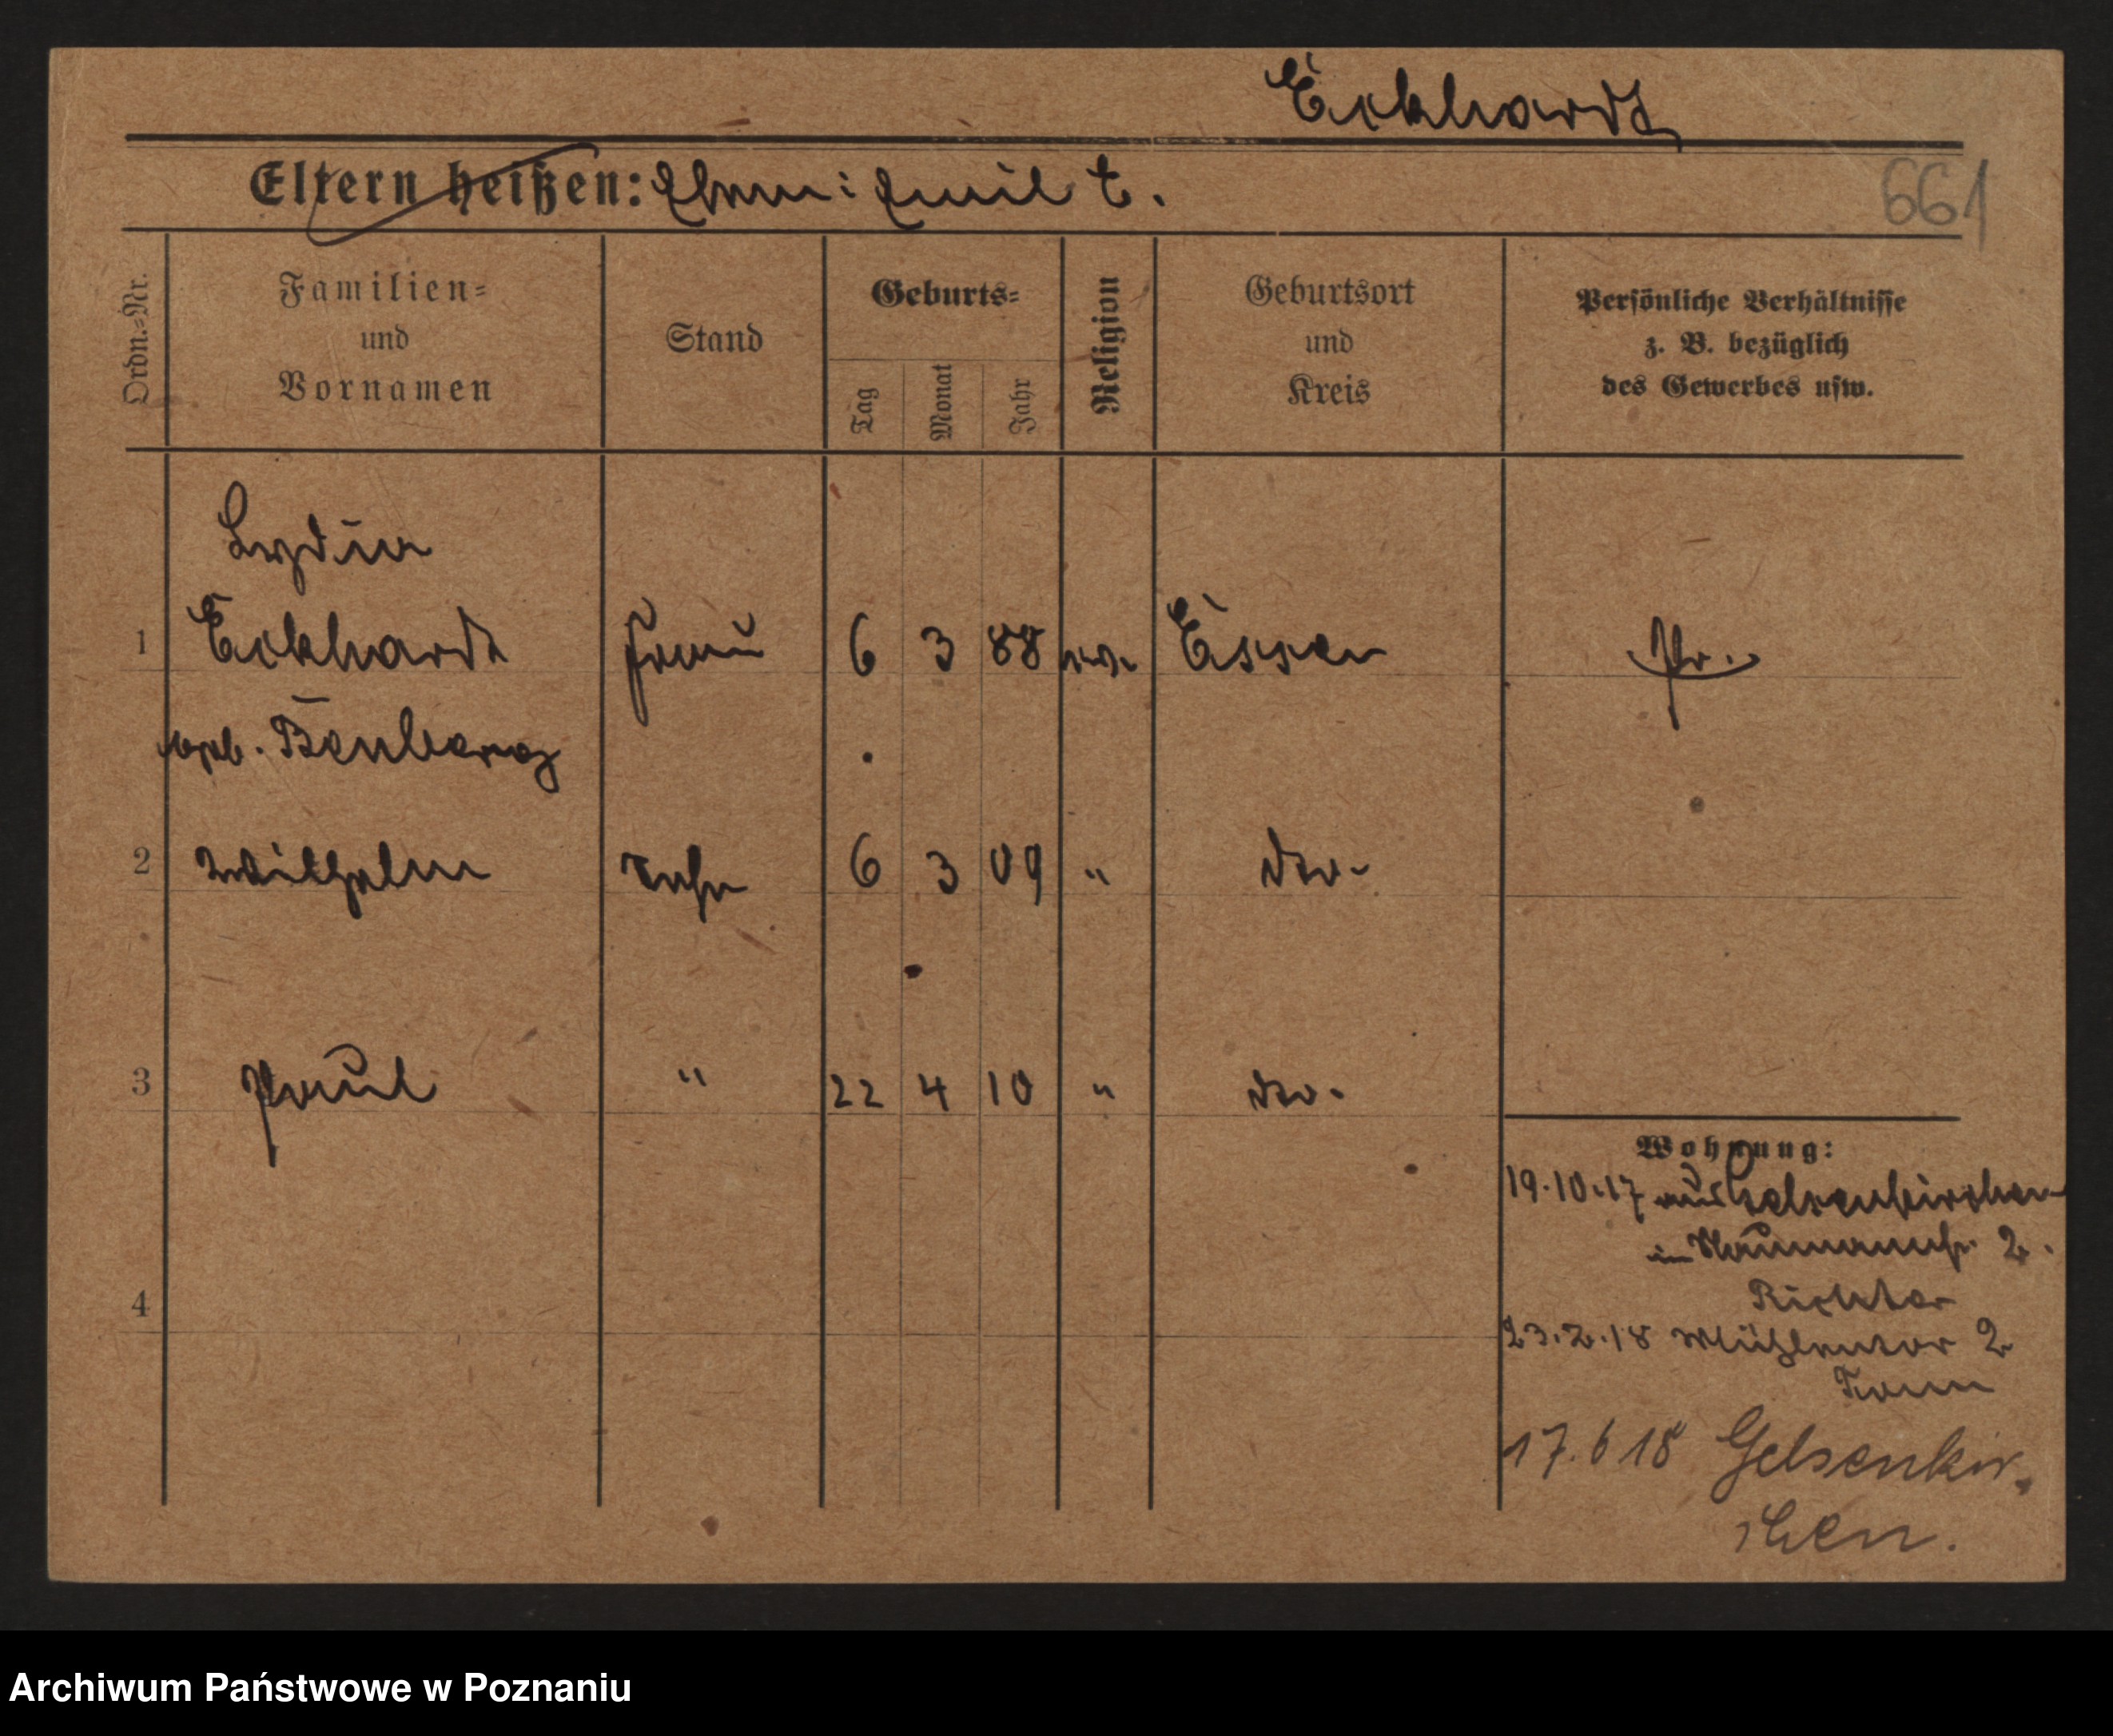 Eckhardt
Eltern heißen: Ehem: Emil E.
661
Ordn.=Nr.
Familien=
und
Vornamen
Stand
Geburts=
Tag
Monat
Jahr
Religion
Geburtsort
und
Kreis
Persönliche Verhältnisse
z. B. bezüglich
des Gewerbes usw.
Lydia
1 Eckhardt Frau 6 3 88 ev. Essen Pr.
geb. Benberg
2 Wilhelm Sohn 6 3 09 " dto.
3 Paul " 22 4 10 " dto.
4
Wohnung:
19.10.17 aus Gelsenkirchen
in Naumannstr. 2.
Richter
23.2.18 Mühlentor 2
17.6 18 Gelsenkir=
chen.
Archiwum Państwowe w Poznaniu